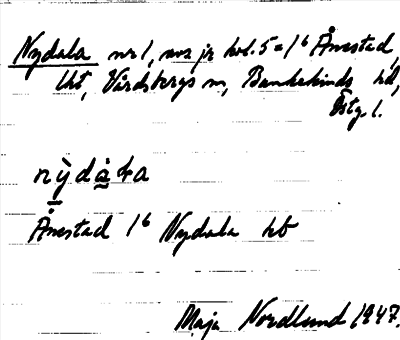 Nydala nr 1, ms jr kol. 5 = 1⁶ Ånestad,
lht, Vårdsbergs sn, Bankekinds hd,
Östg l.
nỳdàla
Ånestad 1⁶ Nydala hb
Maja Nordlund 1947.